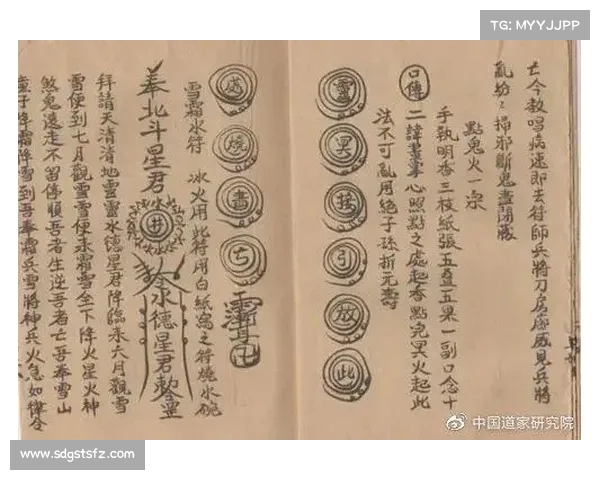 TG: MYYJJPP
亡今教唱病速即去符師兵將刀房處威見兵將
掃邪斷鬼盡閉藏
點鬼火一宗
手執明香三枝紙張五叠五果一副口念十
口傳 二諱畫掌心照點之處起香點完冥火起此
法不可亂用絕子孫折元壽
靈冥接引放此
處燒書亡
雪霜水符 冰火用此符用白紙寫之符燒水碗
奉北斗星君 井 水德星君勅靈
拜請天清清地靈靈水德星君降臨來六月觀雪
雪便到七月觀雪雪便來霜雪全下降火星火神
煞鬼遠走不留停順吾者生逆吾者亡吾奉雪山
童子降霜降雪到吾奉霜兵雪將神兵火急如律令
中国道家研究院
www.sdgstsfz.com